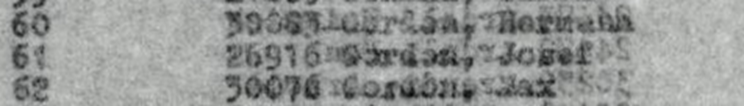 60 39083 Gordon, Hermann
61 26916 Gordon, Josef
62 30076 Gordon, Max